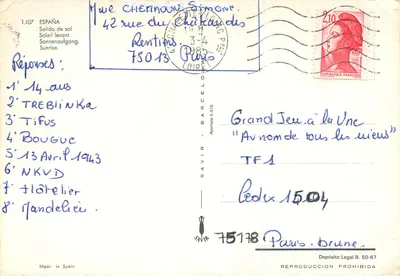 1.107 ESPAÑA
Salida de sol
Soleil levant.
Sonnenaufgang.
Sunrise.
Mme CHEMAOUN Simone.
42 rue du Château des
Rentiers
75013 Paris
3-4
1985
2,10
Réponses :
1° 14 ans
2° TREBLINKA
3° TIFUS
4° BOUGUE
5° 13 Avril 1943
6° NKVD
7° Hôtelier
8° Mandelieu
SAVIR - BARCELONA
Grand Jeu à la Une
"Au nom de tous les miens"
TF1
Cedex 1504
75178
Paris-Brune.
Made in Spain
Depósito Legal B. 50-67
REPRODUCCION PROHIBIDA